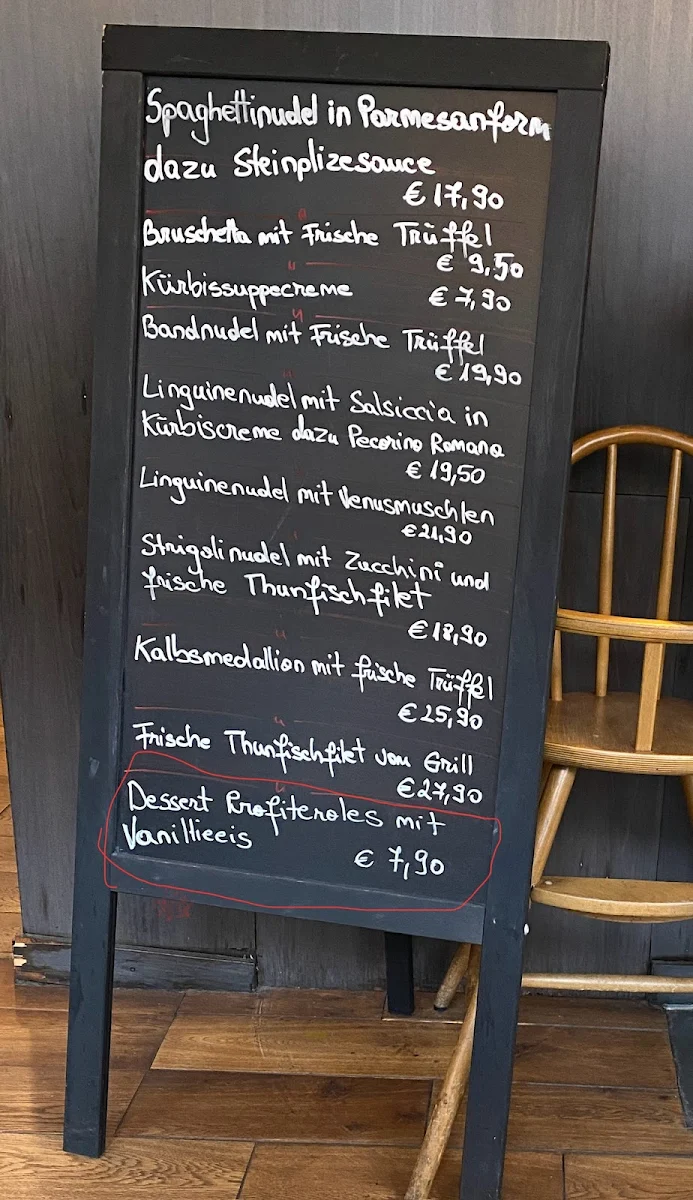 Spaghettinudel in Parmesanform
dazu Steinplizesauce
€ 17,90
Bruschetta mit Frische Trüffel
€ 9,50
Kürbissuppecreme € 7,90
Bandnudel mit Frische Trüffel
€ 19,90
Linguinenudel mit Salsiccia in
Kürbiscreme dazu Pecorino Romana
€ 19,50
Linguinenudel mit Venusmuschlen
€ 21,90
Strigolinudel mit Zucchini und
frische Thunfischfilet
€ 18,90
Kalbsmedallion mit frische Trüffel
€ 25,90
Frische Thunfischfilet vom Grill
€ 27,90
Dessert Profiteroles mit
Vanillieeis
€ 7,90